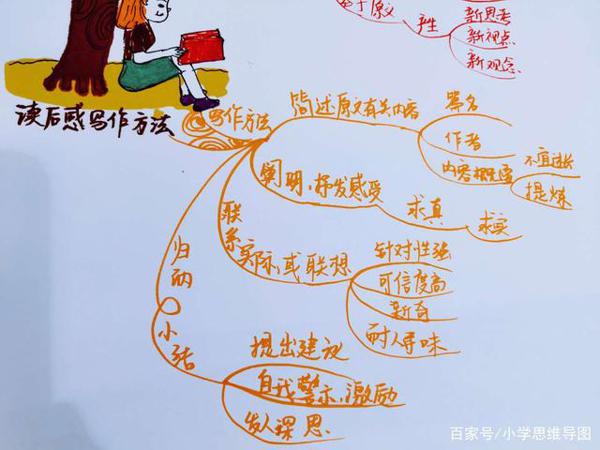 新思考
基于原文
产生
新视点
新观念
读后感写作方法
写作方法
简述原文有关内容
署名
作者
内容概要
不宜过长
提炼
阐明,抒发感受
求真
求实
联系实际,或联想
针对性强
可信度高
新奇
耐人寻味
归纳小结
提出建议
自我警示,激励
发人深思.
百家号/小学思维导图